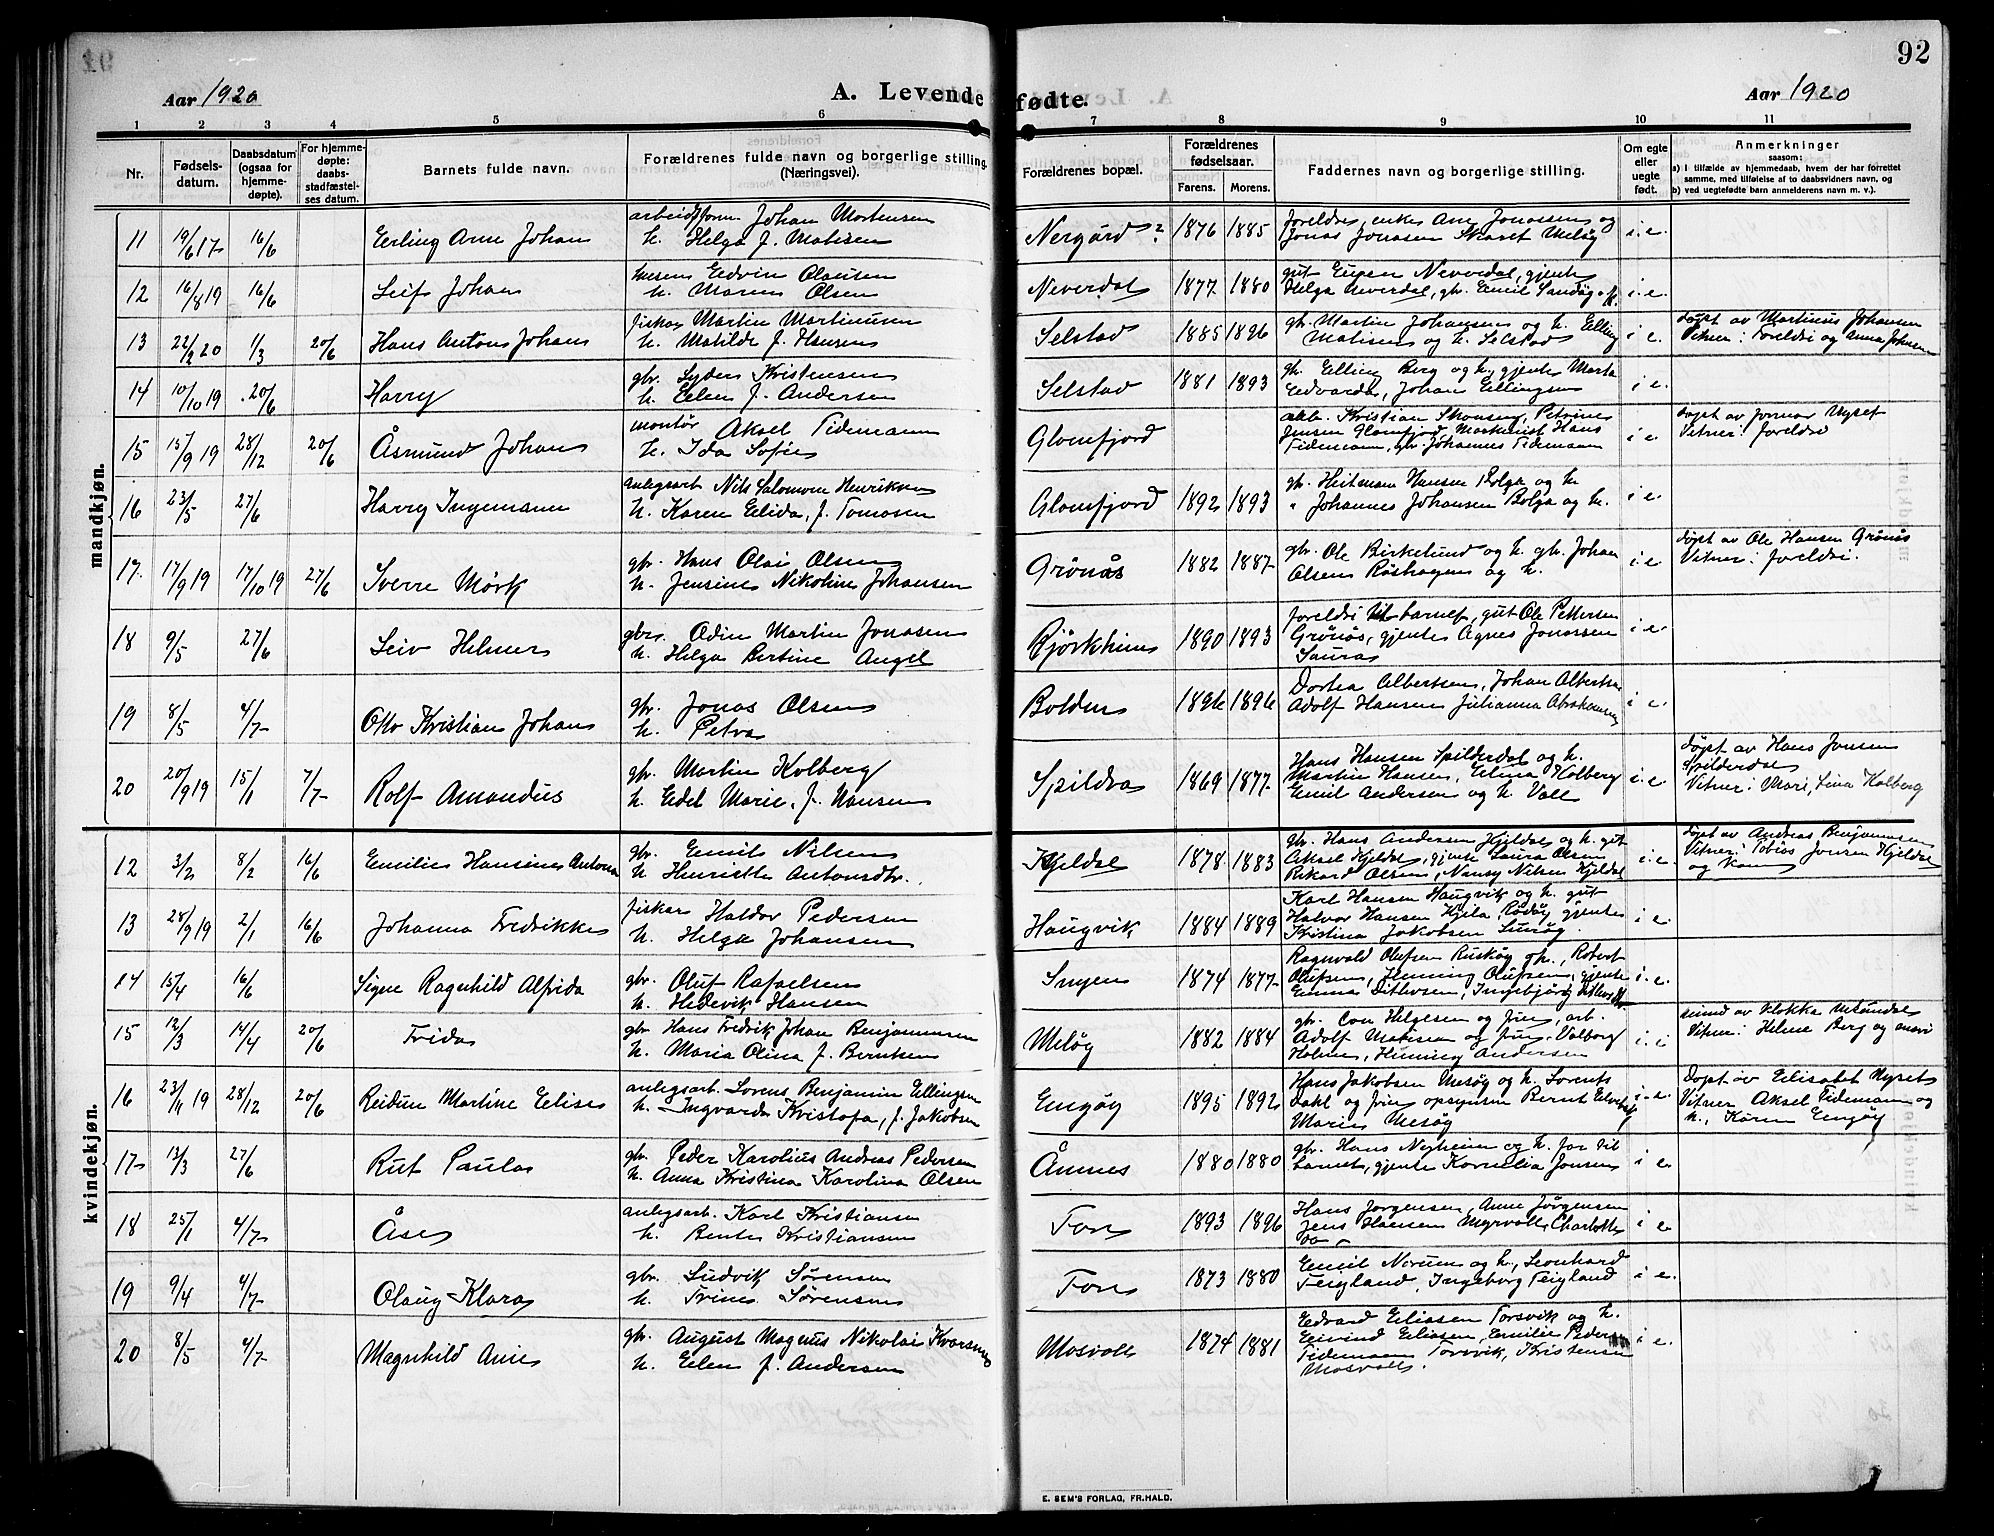 92
Aar 1920
A. Levende fødte.
Aar 1920
1 2 3 4 5 6 7 8 9 10 11
Nr.
Fødsels-
datum.
Daabsdatum
(ogsaa for
hjemme-
døpte).
For hjemme-
døpte:
daabs-
stadfæstel-
ses datum.
Barnets fulde navn.
Forældrenes fulde navn og borgerlige stilling.
(Næringsvei).
Forældrenes bopæl.
Forældrenes
fødselsaar.
Farens. Morens.
Faddernes navn og borgerlige stilling.
Om egte
eller
uegte
født.
Anmerkninger
saasom:
a) I tilfælde av hjemmedaab, hvem der har forrettet
samme, med tilføielse af to daabsvidners navn, og
b) ved uegtefødte barn anmelderens navn m. v.).
mandkjøn.
11 19/6 17 16/6 Erling Arne Johan
arbeidsform Johan Mortensen
h. Helga f. Matisen
Nergård? 1876 1885
foreldre, enke Ane Jonassen og
Jonas Jonasen Skaret Meløy
i. e.
12 16/8 19 16/6 Leif Johan
Edvin Olausen
h. Maren Olsen
Neverdal 1877 1880
gut Einer Neverdal, gjente
Helga Neverdal, gbr. Emil Sandøy
i. e.
13 22/2 20 1/3 20/6 Hans Anton Johan
fisker Martin Martinusen
h. Matilde f. Hansen
Selstad 1885 1896
gbr. Martin Johansen og h. Elling
Matisen og h. Selstad
i e.
døpt av Martinus Johansen
Vitner: Foreldre og Anna Johnsen
14 10/10 19 20/6 Harry
gbr. Syder Kristensen
h. Elen f. Andersen
Selstad 1881 1893
gb. Elling Berg og h., gjente Marta
Edvarda, Johan Ellingsen
i e.
15 15/9 19 28/12 20/6 Åsmund Johan
montør Aksel Tidemann
h. Ida Sofie
Glomfjord
arb. Kristian Skonseng, Petrine
Jensen Glomfjord, Maskinist Hans
Tidemann, gbr. Johannes Tidemann
i e.
døpt av jormor Nyset
Vitner: foreldre
16 23/5 27/6 Harry Ingemann
anlegsarb Nils Salomon Henriksen
h. Karen Elida, f. Tomasen
Glomfjord 1892 1893
gb. Heitman Hansen Bolga og h.
" Johannes Johansen Bolga og h.
i e.
17. 17/9 19 17/10 19 27/6 Sverre Mørk
gbr. Hans Olai Olsen
h. Jensine Nikoline Johansen
Grönås 1882 1887
gbr. Ole Birkelund og h. gbr. Johan
Olsen Røshagen og h.
i e
døpt av Ole Hansen Grönås
Vitner: foreldre.
18 9/5 27/6 Leiv Helmer
gbr. Odin Martin Jonasen
h. Helga Bertine Angel
Bjørkheim 1890 1893
foreldre til barnet, gut Ole Pettersen
Grönås, gjente Agnes Jonassen
Sauras
i e.
19 8/5 4/7 Otto Kristian Johan
gbr. Jonas Olsen
h. Petra
Bolden 1896 1896
Dortea Albertsen, Johan Albertsen
Adolf Hansen Julianna Abrahamsen
i e.
20 20/9 19 15/1 7/7 Rolf Amandus
gbr. Martin Kolberg
h. Edel Marie, f. Hansen
Spildra 1869 1877
Hans Hansen Spilderdal og h.
Martin Hansen, Elina Kolberg
Emil Andersen og h. Vall
i. e.
døpt av Hans Jensen
Spilderdal
Vitner: Mari, Lina Kolberg
kvindekjøn.
12 3/2 8/2 16/6 Emilie Hansine Antona
gbr. Emil Nilsen
h Henriette Antonsdtr.
Kjeldal 1878 1883
gbr. Hans Andersen Kjeldal og h. gut
Aksel Kjeldal, gjente Laura Olsen
Rikard Olsen, Nansy Nilsen Kjeldal
i. e.
døpt av Andreas Benjaminsen
Vitner: Tobias Jensen Kjeldal
og kone
13 28/9 19 2/1 16/6 Johanna Fredrikke
fisker Haldor Pedersen
h. Helga Johansen
Haugvik 1884 1889
Karl Hansen Haugvik og h. gut
Halvor Hansen Kjela, Rødøy gjente
Kristina Jakobsen
i e.
14 15/4 16/6 Signe Ragnhild Alfrida
gbr. Oluf Rafaelsen
h. Hedevik Hansen
Ingen 1874 1877
Ragnvald Olufsen Ruskøy gb., Robert
Olufsen, Heming Olufsen, gjente
Emma Ditlevsen, Ingebjørg
i e.
15 12/3 14/4 20/6 Frida
gbr Hans Fredrik Johan Benjaminsen
h. Maria Olina f. Berntsen
Meløy 1882 1884
gbr. Con Helgesen og frue, arb.
Adolf Matisen og frue, Valborg
Holmen, Heming Andersen
i. i
av klokka
Vitner: Helene Berg og
16 23/11 19 28/12 20/6 Reidun Martine Elise
anlegsarb. Lorens Benjamin Ellingsen
h. Ingvarda Kristofa, f. Jakobsen
Engøy 1895 1892
Hans Jakobsen Mesøy og h. Lorents
Dahl og frue opsynsm Bernt
Marie Mesøy
i. e
Døpt av Elisabet Nyset
Vitner Aksel Tidemann og
h., Karen Engøy
17 13/3 27/6 Rut Paula
gbr. Peder Karolius Andreas Pedersen
h. Anna Kristina Karolina Olsen
Åmnes 1880 1880
gbr. Hans Nerheim og h. far til
barnet, gjente Kornelia Jonsen
i e.
18 25/1 4/7 Åse
anlegsarb. Karl Kristiansen
h. Bente Kristiansen
Fore 1893 1896
Hans Jørgensen, Anne Jørgensen
Jens Hansen Myrvoll, Charlotte
do
i e
19 9/4 4/7 Olaug Klara
gbr. Ludvik Sørensen
h. Trine Sørensen
Fore 1873 1880
Emil Norum og h., Leonhard
Feigland, Ingeborg Feigland
i e.
20 8/5 4/7 Magnhild Anie
gbr. August Magnus Nikolai Kvarsnes
h. Elen f. Andersen
Mosvoll 1874 1881
Edvard Eliasen Torsvik og h.
Eivind Eliasen, Emilie Pedersen
Tidemann Torsvik, Kristensen
Mosvoll.
i e.
E. SEM'S FORLAG, FR.HALD.